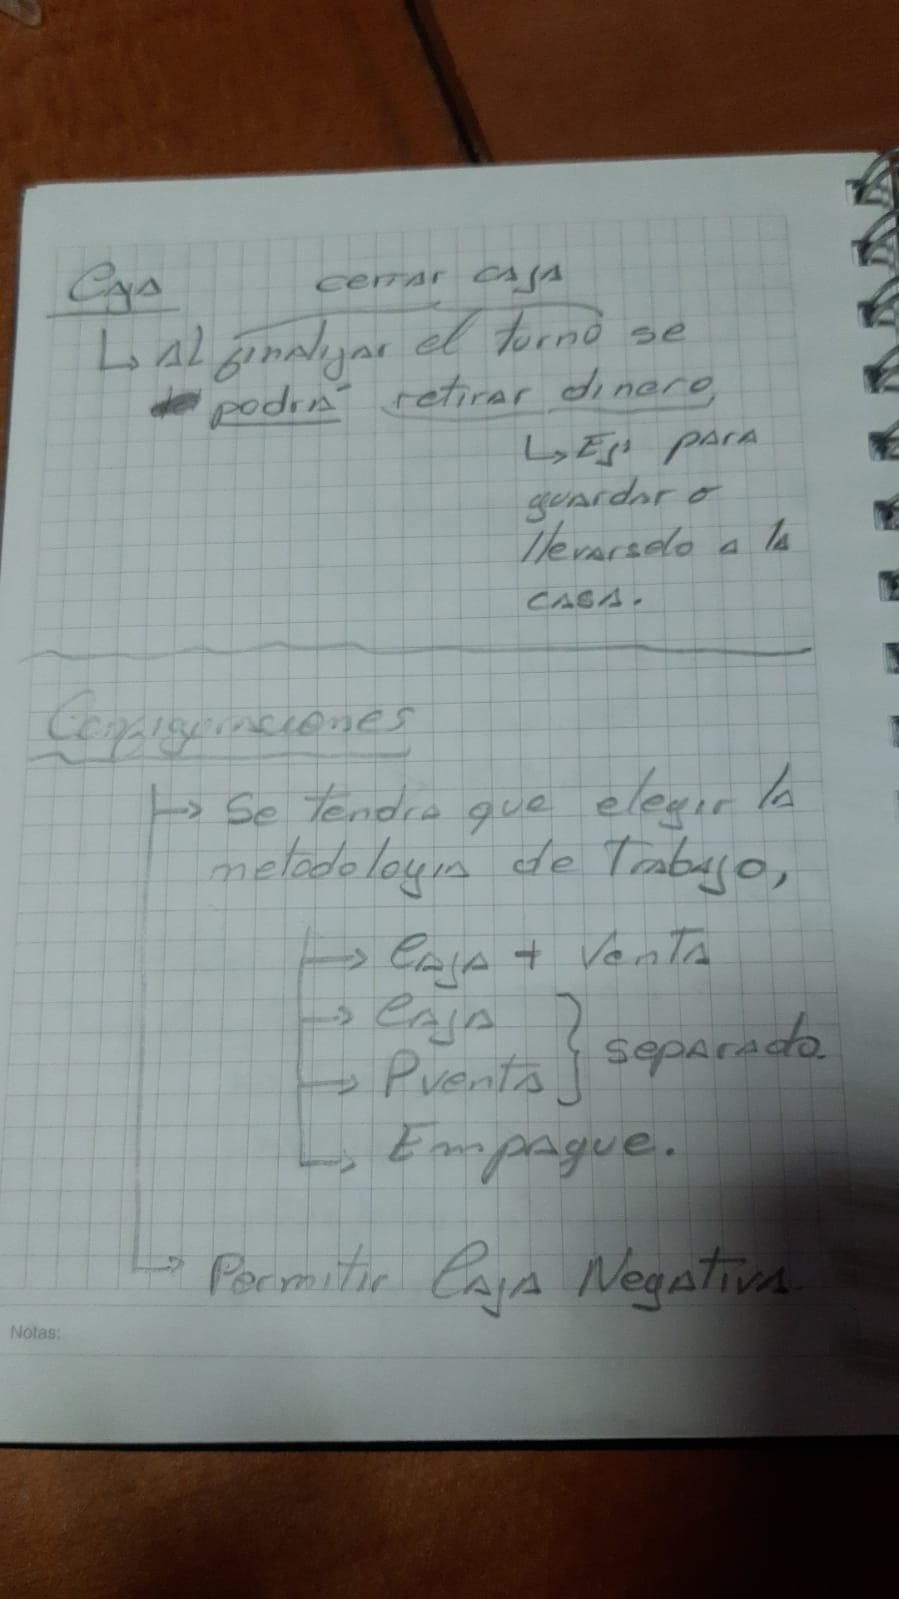 Caja cerrar caja
↳ Al finalizar el turno se
podrá retirar dinero,
↳ Ej: para
guardar o
llevarselo a la
casa.
Configuraciones
→ Se tendra que elegir la
metodologia de Trabajo,
→ Caja + Venta
→ Caja
→ Pventa } separado
↳ Empaque.
↳ Permitir Caja Negativa
Notas: